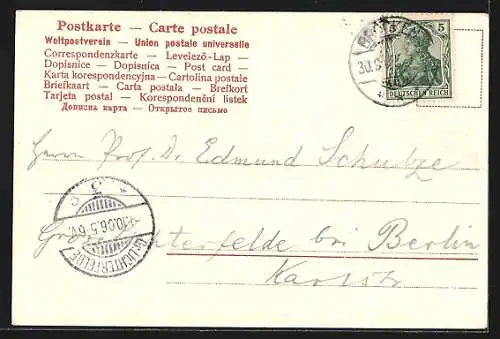 Postkarte — Carte postale
Weltpostverein — Union postale universelle
Correspondenzkarte — Levelező-Lap —
Dopisnice — Dopisnica — Post card —
Karta korespondencyjna — Cartolina postale
Briefkaart — Carta postala — Brefkort
Tarjeta postal — Korespondenční listek
Дописна карта — Открытое письмо
5
DEUTSCHES REICH
Herrn Prof. Dr. Edmund Schultze
1.10.06.5-6N.
GR. LICHTERFELDE
Gross Lichterfelde bei Berlin
Karlstr